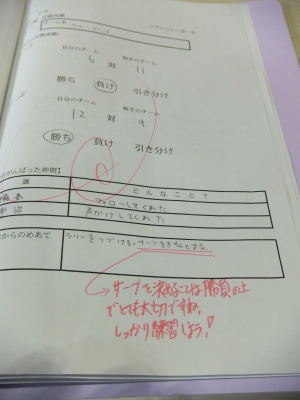 自分のチーム 相手のチーム
6 対 11
勝ち 負け 引き分け
自分のチーム 相手のチーム
12 対 9
勝ち 負け 引き分け
がんばった仲間】
誰 どんなこと?
フォローしてくれた
声かけしてくれた
からのめあて ラリーをつづける。サーブをきちんとする。
サーブを決めることは勝負の上
でとても大切ですね。
しっかり練習しよう!